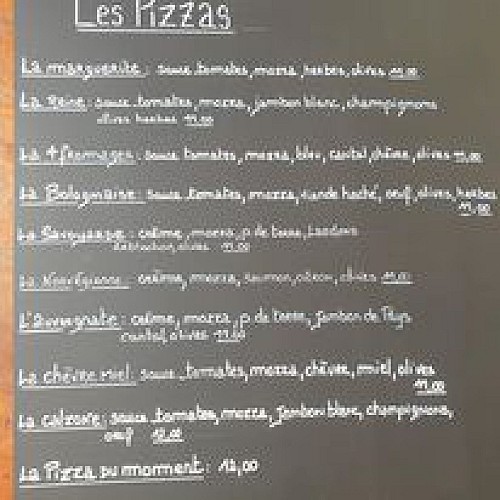 Les Pizzas
La marguerite : sauce tomates, mozza, herbes, olives 11,00
La Reine : sauce tomates, mozza, jambon blanc, champignons
olives herbes 11,00
La 4 fromages : sauce tomates, mozza, bleu, cantal, chèvre, olives 11,00
La Bolognaise : sauce tomates, mozza, viande haché, oeuf, olives, herbes
11,00
La Savoyarde : crème, mozza, p de terre, Lardons
Reblochon, olives 11,00
La Norvégienne : crème, mozza, saumon, citron, olives 11,00
L'Auvergnate : crème, mozza, p de terre, jambon de Pays
cantal, olives 11,00
La chèvre miel : sauce tomates, mozza, chèvre, miel, olives
11,00
La calzone : sauce tomates, mozza, jambon blanc, champignons,
oeuf 12,00
La Pizza du moment : 12,00